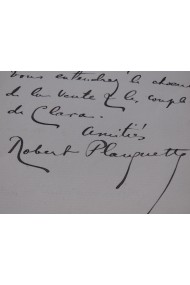 vous entendrez le chœur
de la vente & les couplets
de Clara.
Amitiés
Robert Planquette